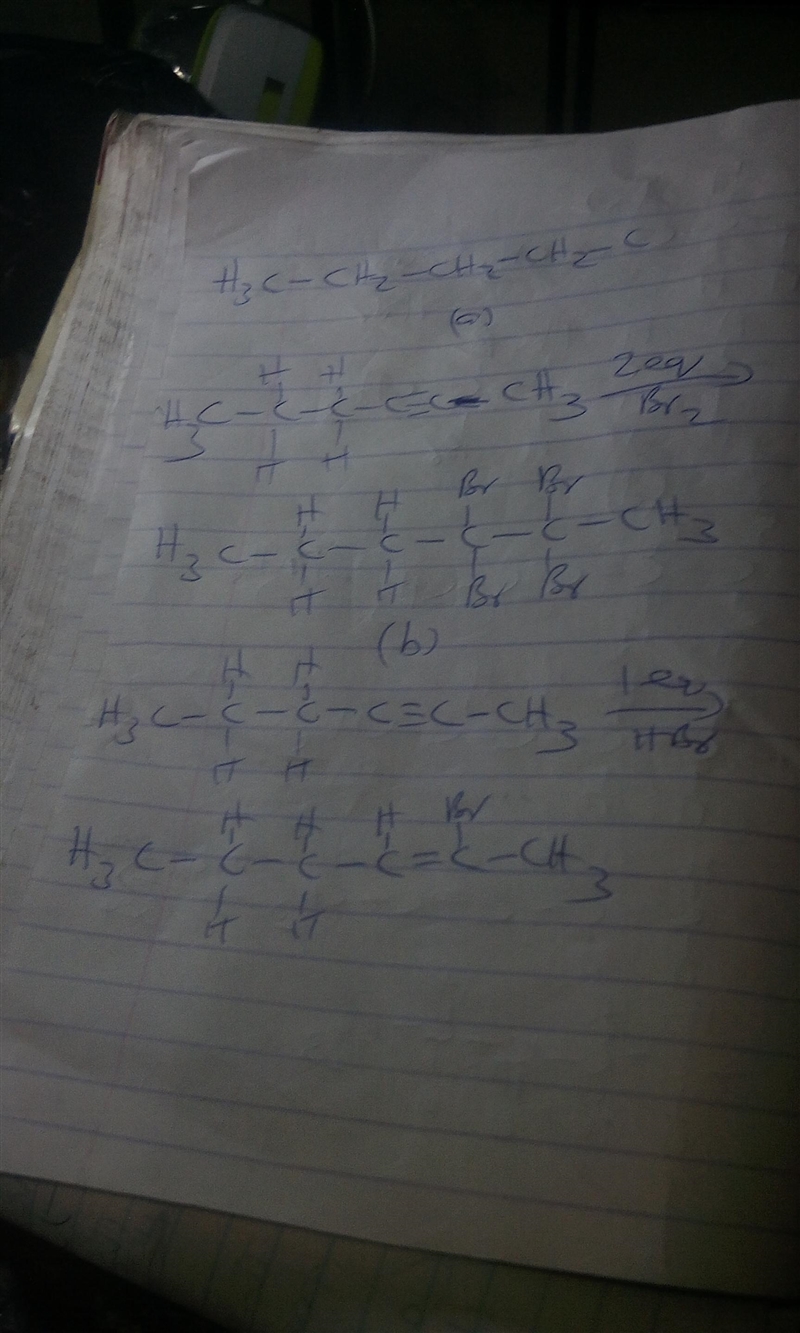 H3C-CH2-CH2-CH2-C
(a)
H H
H3C-C-C-C≡C-CH3 2eq
Br2
H H
H H Br Br
H3C-C-C-C-C-CH3
H H Br Br
(b)
H H
H3C-C-C-C≡C-CH3 1eq
HBr
H H
H H H Br
H3C-C-C-C=C-CH3
H H